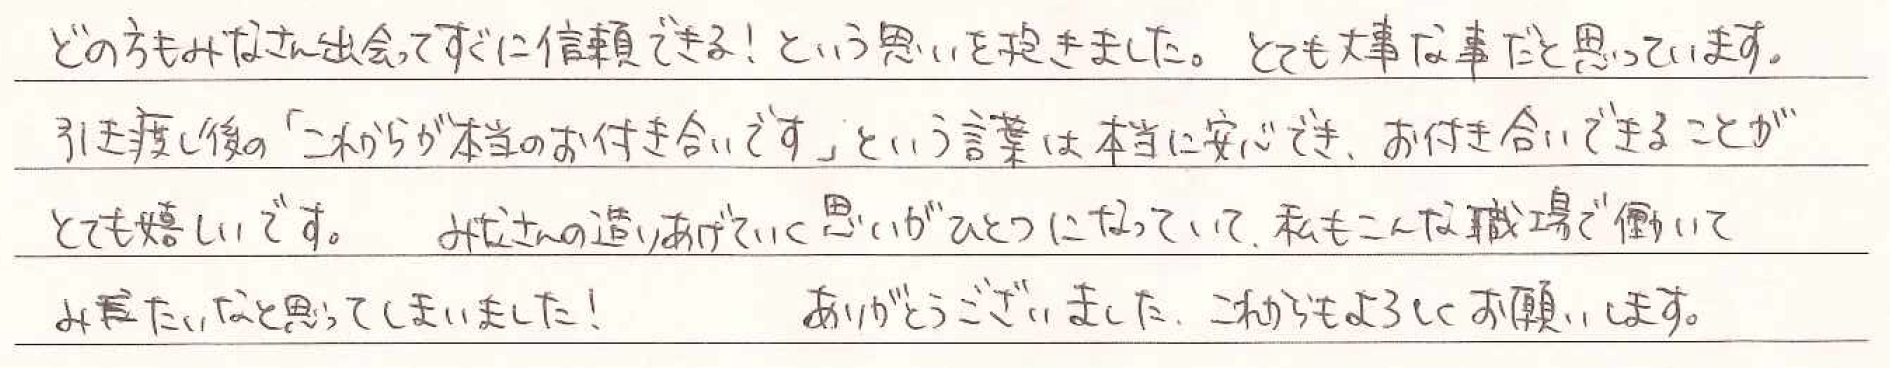 どの方もみなさん出会ってすぐに信頼できる!という思いを抱きました。とても大事な事だと思っています。
引き渡し後の「これからが本当のお付き合いです」という言葉は本当に安心でき、お付き合いできることが
とても嬉しいです。 みなさんの造りあげていく思いがひとつになっていて、私もこんな職場で働いて
みたいなと思ってしまいました! ありがとうございました、これからもよろしくお願いします。